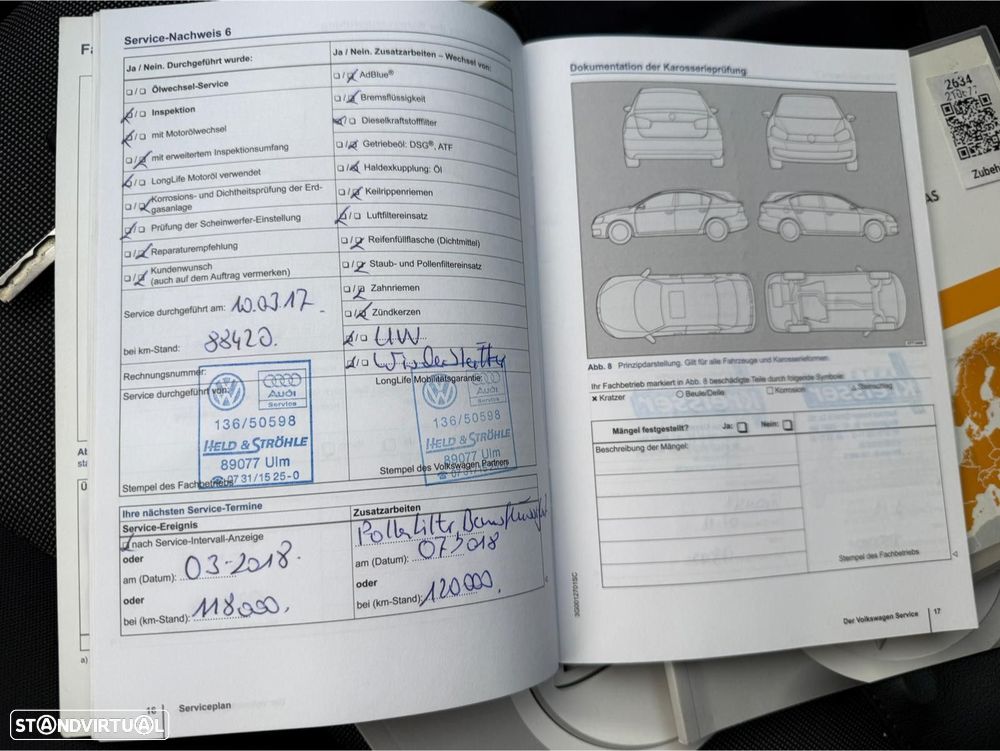 Service-Nachweis 6
Ja / Nein. Durchgeführt wurde:
Ölwechsel-Service
Inspektion
mit Motorölwechsel
mit erweitertem Inspektionsumfang
LongLife Motoröl verwendet
Korrosions- und Dichtheitsprüfung der Erd-
gasanlage
Prüfung der Scheinwerfer-Einstellung
Reparaturempfehlung
Kundenwunsch
(auch auf dem Auftrag vermerken)
Service durchgeführt am: 10.03.17.
bei km-Stand: 88420.
Rechnungsnummer:
Service durchgeführt von:
Audi
Service
136/50598
HELD & STRÖHLE
89077 Ulm
☎ 0731/15 25-0
Stempel des Fachbetriebs
Ja / Nein. Zusatzarbeiten – Wechsel von:
AdBlue®
Bremsflüssigkeit
Dieselkraftstofffilter
Getriebeöl: DSG®, ATF
Haldexkupplung: Öl
Keilrippenriemen
Luftfiltereinsatz
Reifenfüllflasche (Dichtmittel)
Staub- und Pollenfiltereinsatz
Zahnriemen
Zündkerzen
UW
LongLife Mobilitätsgarantie:
Audi
Service
136/50598
HELD & STRÖHLE
89077 Ulm
☎ 0731/15 25-0
Stempel des Volkswagen Partners
Ihre nächsten Service-Termine
Service-Ereignis
nach Service-Intervall-Anzeige
oder
am (Datum): 03-2018.
oder
bei (km-Stand): 118000.
Zusatzarbeiten
am (Datum): 07.2018
oder
bei (km-Stand): 120000.
16
Serviceplan
Dokumentation der Karosserieprüfung
Abb. 8 Prinzipdarstellung. Gilt für alle Fahrzeuge und Karosserieformen.
Ihr Fachbetrieb markiert in Abb. 8 beschädigte Teile durch folgende Symbole:
× Kratzer ○ Beule/Delle □ Korrosion Steinschlag
Mängel festgestellt? Ja: Nein:
Beschreibung der Mängel:
Stempel des Fachbetriebs
3G0012701SC
Der Volkswagen Service 17
2634
Zubeh
AS
a)
STANDVIRTUAL